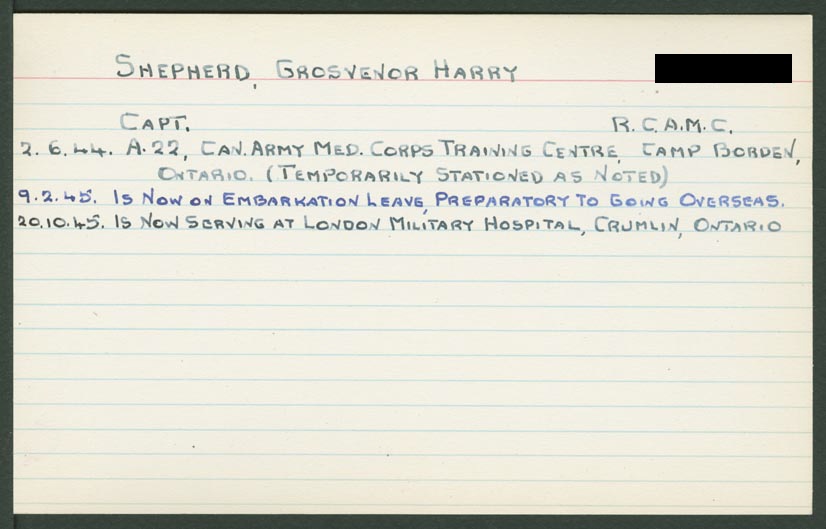 SHEPHERD, GROSVENOR HARRY
CAPT. R.C.A.M.C.
2.6.44. A.22, CAN. ARMY MED. CORPS TRAINING CENTRE, CAMP BORDEN,
ONTARIO. (TEMPORARILY STATIONED AS NOTED)
9.2.45. IS NOW ON EMBARKATION LEAVE, PREPARATORY TO GOING OVERSEAS.
20.10.45. IS NOW SERVING AT LONDON MILITARY HOSPITAL, CRUMLIN, ONTARIO